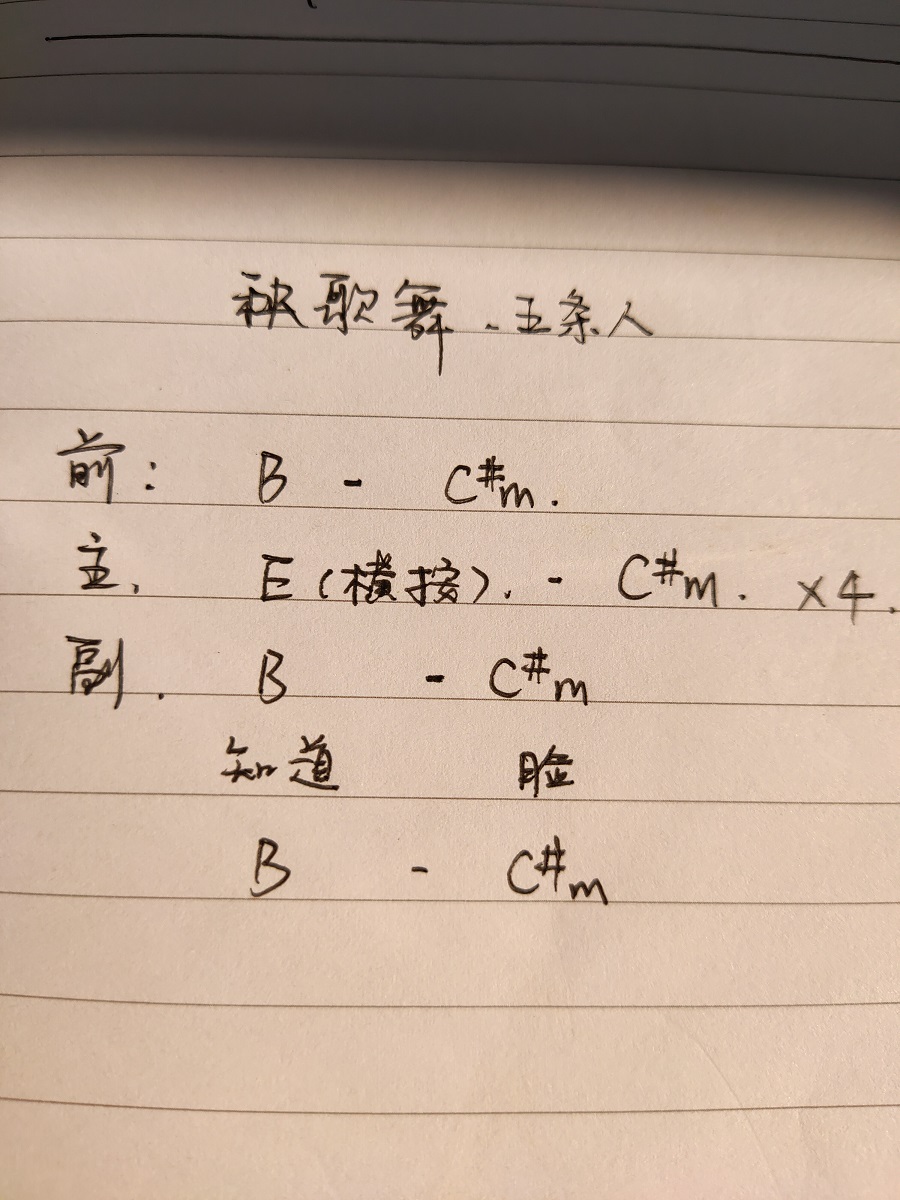 秧歌舞、五条人
前： B - C#m.
主、 E（横按）. - C#m. ×4.
副. B - C#m
知道 脸
B - C#m